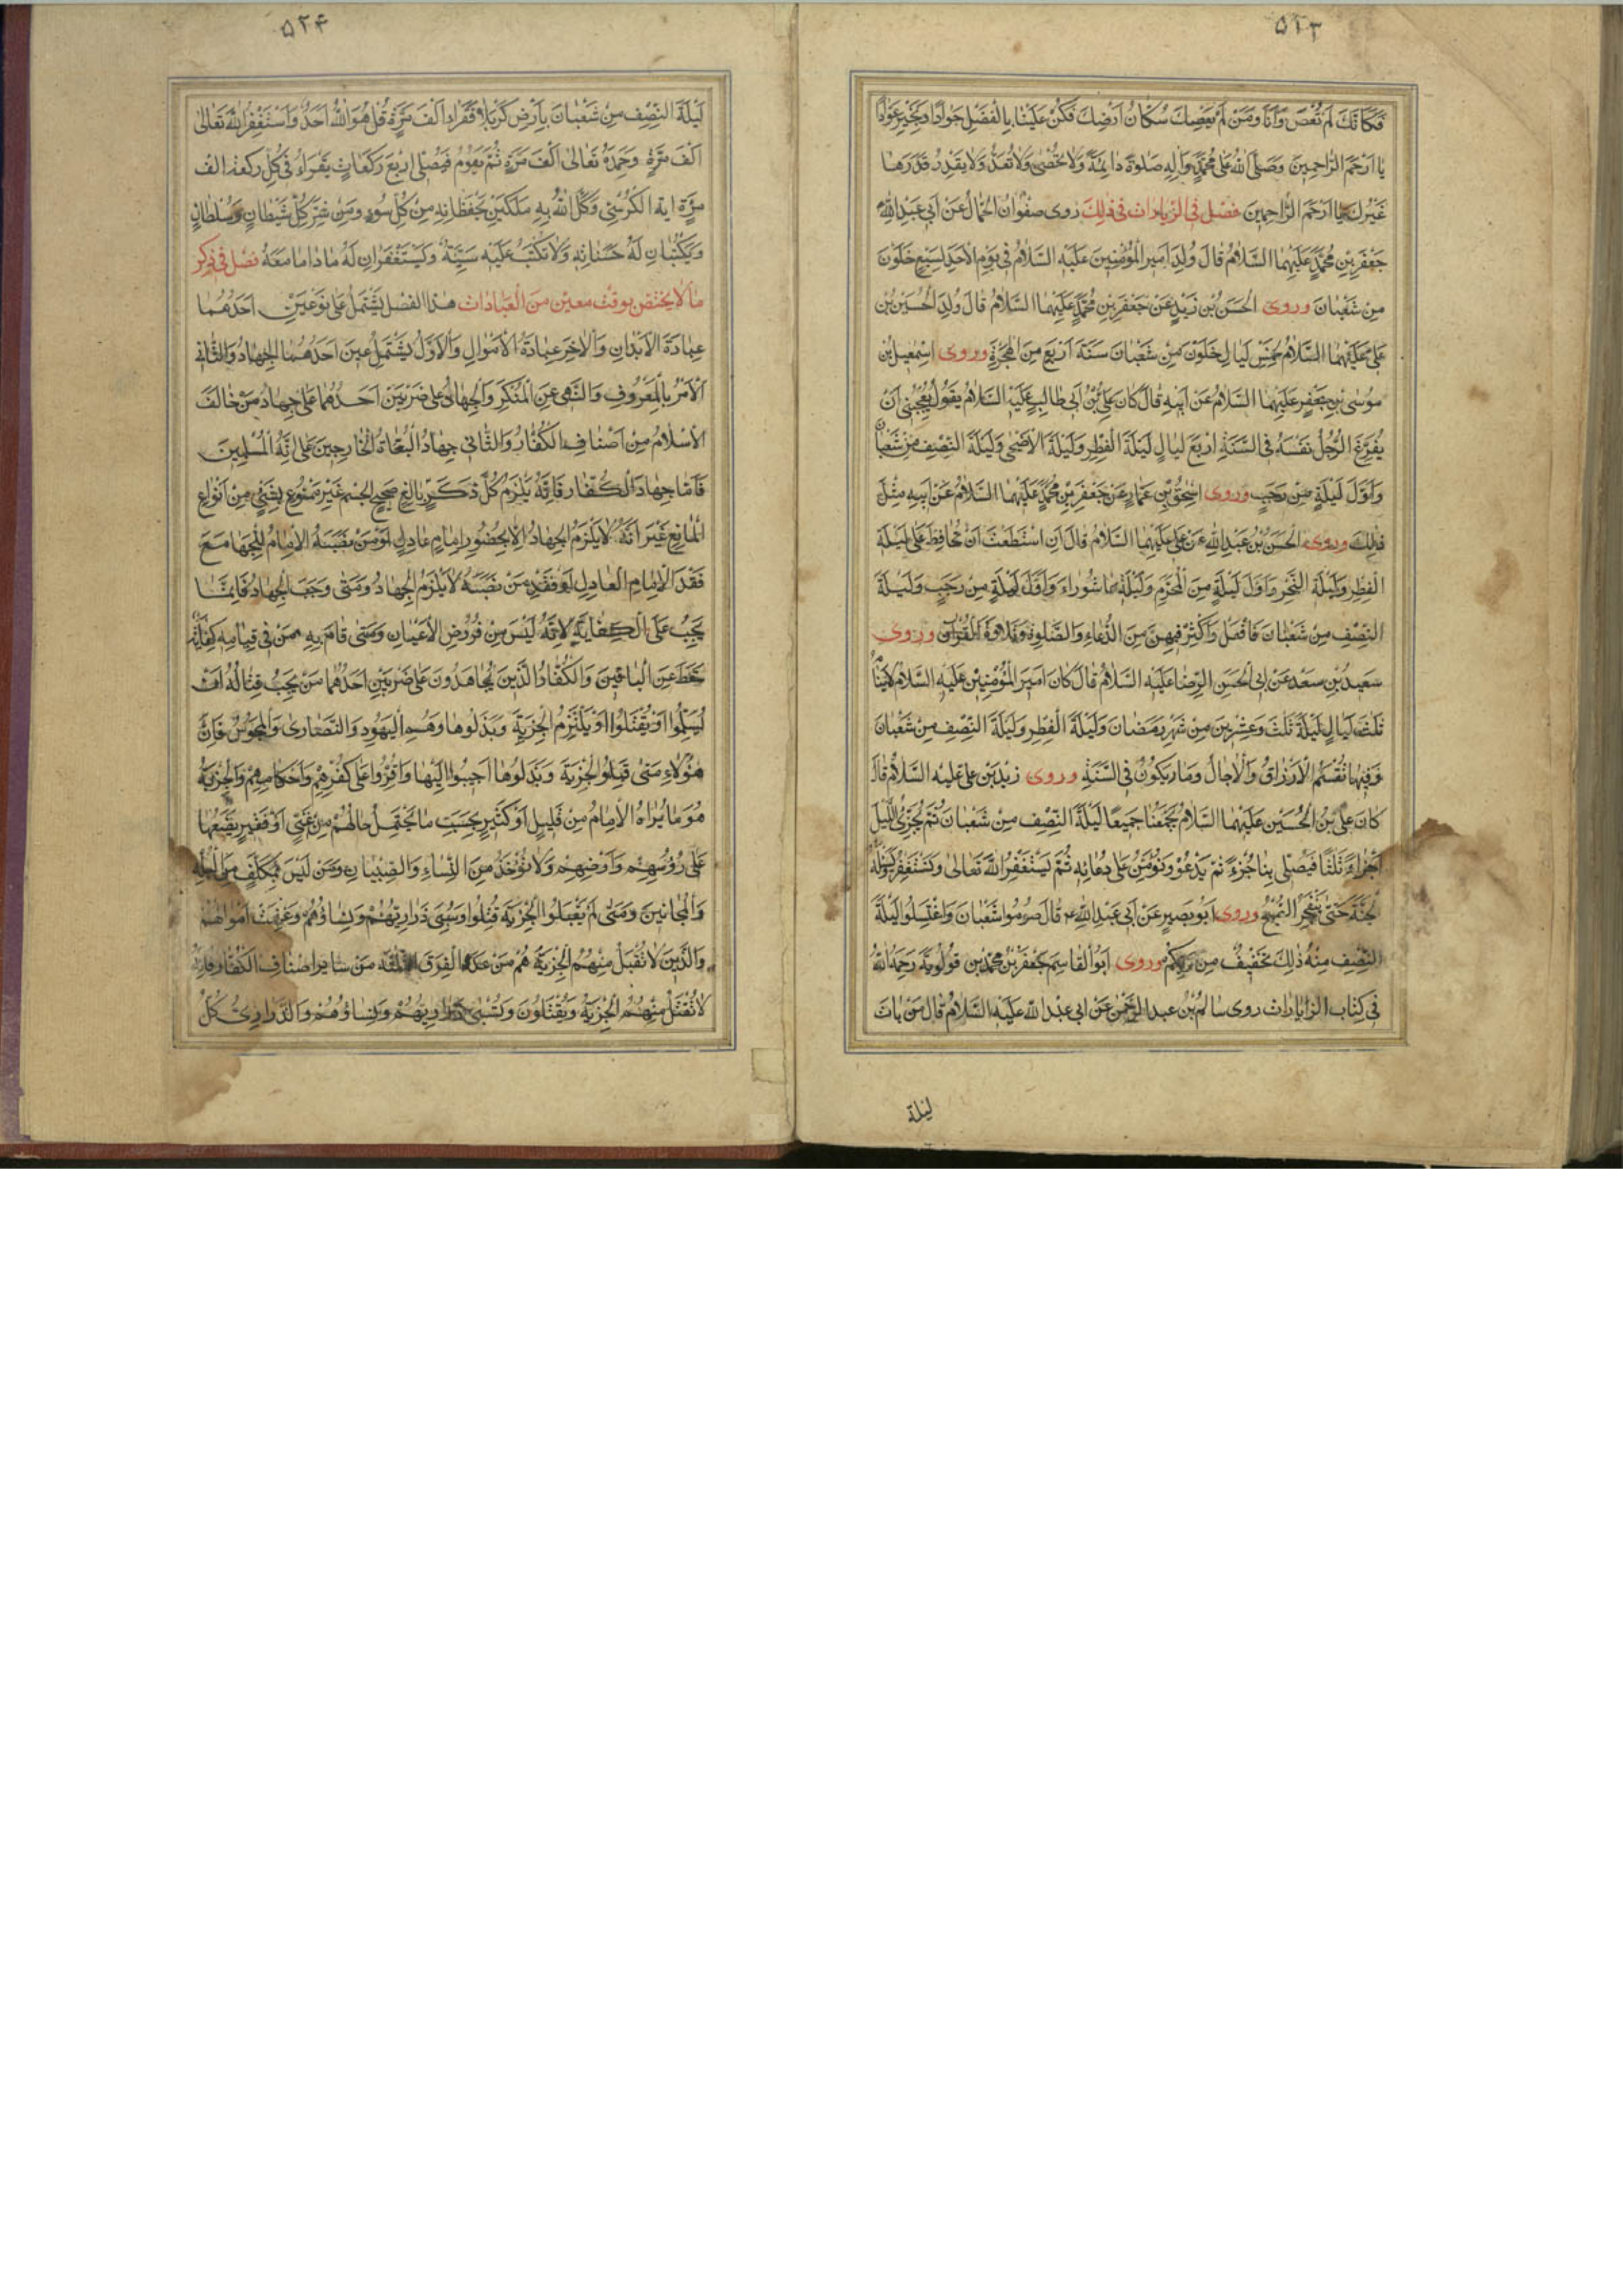 ٥٢٣
فكانك لم تعص وانا ومن لم يعصك سكان ارضك فكن علينا بالفضل جوادا وبخير عوادا
يا ارحم الراحمين وصلى الله على محمد واله صلوة دائمة ولا تحصى ولا تعد ولا يقدر قدرها
غيرك يا ارحم الراحمين فصل فى الزيادات فى ذلك روى صفوان الجمال عن ابى عبد الله
جعفر بن محمد عليهما السلام قال ولد امير المؤمنين عليه السلام فى يوم الاحد لسبع خلون
من شعبان وروى الحسن بن زيد عن جعفر بن محمد عليهما السلام قال ولد الحسين بن
على عليهما السلام لخمس ليال خلون من شعبان سنة اربع من الهجرة وروى اسمعيل بن
موسى بن جعفر عليهما السلام عن ابيه قال كان على بن ابى طالب عليه السلام يقول يعجبنى ان
يفرغ الرجل نفسه فى السنة اربع ليال ليلة الفطر وليلة الاضحى وليلة النصف من شعبان
واول ليلة من رجب وروى اسحق بن عمار عن جعفر بن محمد عليهما السلام عن ابيه مثل
ذلك وروى الحسن بن عبد الله عن على عليهما السلام قال ان استطعت ان تحافظ على ليلة
الفطر وليلة النحر واول ليلة من المحرم وليلة عاشوراء واول ليلة من رجب وليلة
النصف من شعبان فافعل واكثر فيهن من الدعاء والصلوة وتلاوة القران وروى
سعيد بن سعد عن ابى الحسن الرضا عليه السلام قال كان امير المؤمنين عليه السلام لا ينام
ثلث ليال ليلة ثلث وعشرين من شهر رمضان وليلة الفطر وليلة النصف من شعبان
وفيها تقسم الارزاق والاجال وما يكون فى السنة وروى زيد بن على عليه السلام قال
كان على بن الحسين عليهما السلام يجمعنا جميعا ليلة النصف من شعبان ثم يجزى الليل
اجزاء ثلثا فيصلى بنا جزء ثم يدعو ونؤمن على دعائه ثم يستغفر الله تعالى ونستغفره ونسئله
الجنة حتى ينفجر الصبح وروى ابو بصير عن ابى عبد الله ع قال صوموا شعبان واغتسلوا ليلة
النصف منه ذلك تخفيف من ربكم وروى ابو القاسم جعفر بن محمد بن قولويه رحمه الله
فى كتاب الزايارات روى سالم بن عبد الرحمن عن ابى عبد الله عليه السلام قال من بات
ليلة
٥٢٤
ليلة النصف من شعبان بارض كربلا فقراء الف مرة قل هو الله احد واستغفر الله تعالى
الف مرة وحمده تعالى الف مرة ثم يقوم فيصلى اربع ركعات يقراء فى كل ركعة الف
مرة اية الكرسى وكل الله به ملكين يحفظانه من كل سوء ومن شر كل شيطان وسلطان
ويكتبان له حسناته ولا تكتب عليه سيئة ويستغفران له ماداما معه فصل فى ذكر
ما لا يختص بوقت معين من العبادات هذا الفصل يشتمل على نوعين احدهما
عبادة الابدان والاخر عبادة الاموال والاول يشتمل عين احدهما الجهاد والثانى
الامر بالمعروف والنهى عن المنكر والجهاد على ضربين احدهما على جهاد من خالف
الاسلام من اصناف الكفار والثانى جهاد البغاة الخارجين على ائمة المسلمين
فاما جهاد الكفار فانه يلزم كل ذكر بالغ صحيح الجسم غير ممنوع بشىء من انواع
المانع غير انه لا يلزم الجهاد الا بحضور امام عادل او من نصبه الامام للجها مع
فقد الامام العادل او فقد من نصبه لا يلزم الجهاد ومتى وجب الجهاد فانما
يجب على الكفاية لانه ليس من فروض الاعيان ومتى قام به من فى قيامه كفاية
سقط عن الباقين والكفار الذين يجاهدون على ضربين احدهما من يجب قتاله ان
يسلموا او يقتلوا او يلتزم الجزية وبذلوها وهم اليهود والنصارى والمجوس فان
هؤلاء متى قبلوا الجزية وبذلوها اجيبوا اليها واقروا على كفرهم واحكامهم والجزية
هو ما يراه الامام من قليل او كثير بحسب ما يحتمل حالهم من غنى او فقير يضعها
على رؤسهم وارضهم ولا تؤخذ من النساء والصبيان ومن ليس بمكلف من البله
والمجانين ومتى لم يقبلوا الجزية قتلوا وسبى ذراريهم ونساؤهم وغنمت اموالهم
والذين لا تقبل منهم الجزية هم من عدا الفرق الثلاثة من ساير اصناف الكفار فانه
لا تقبل منهم الجزية ويقتلون وتسبى ذراريهم ونساؤهم والذرارى كل